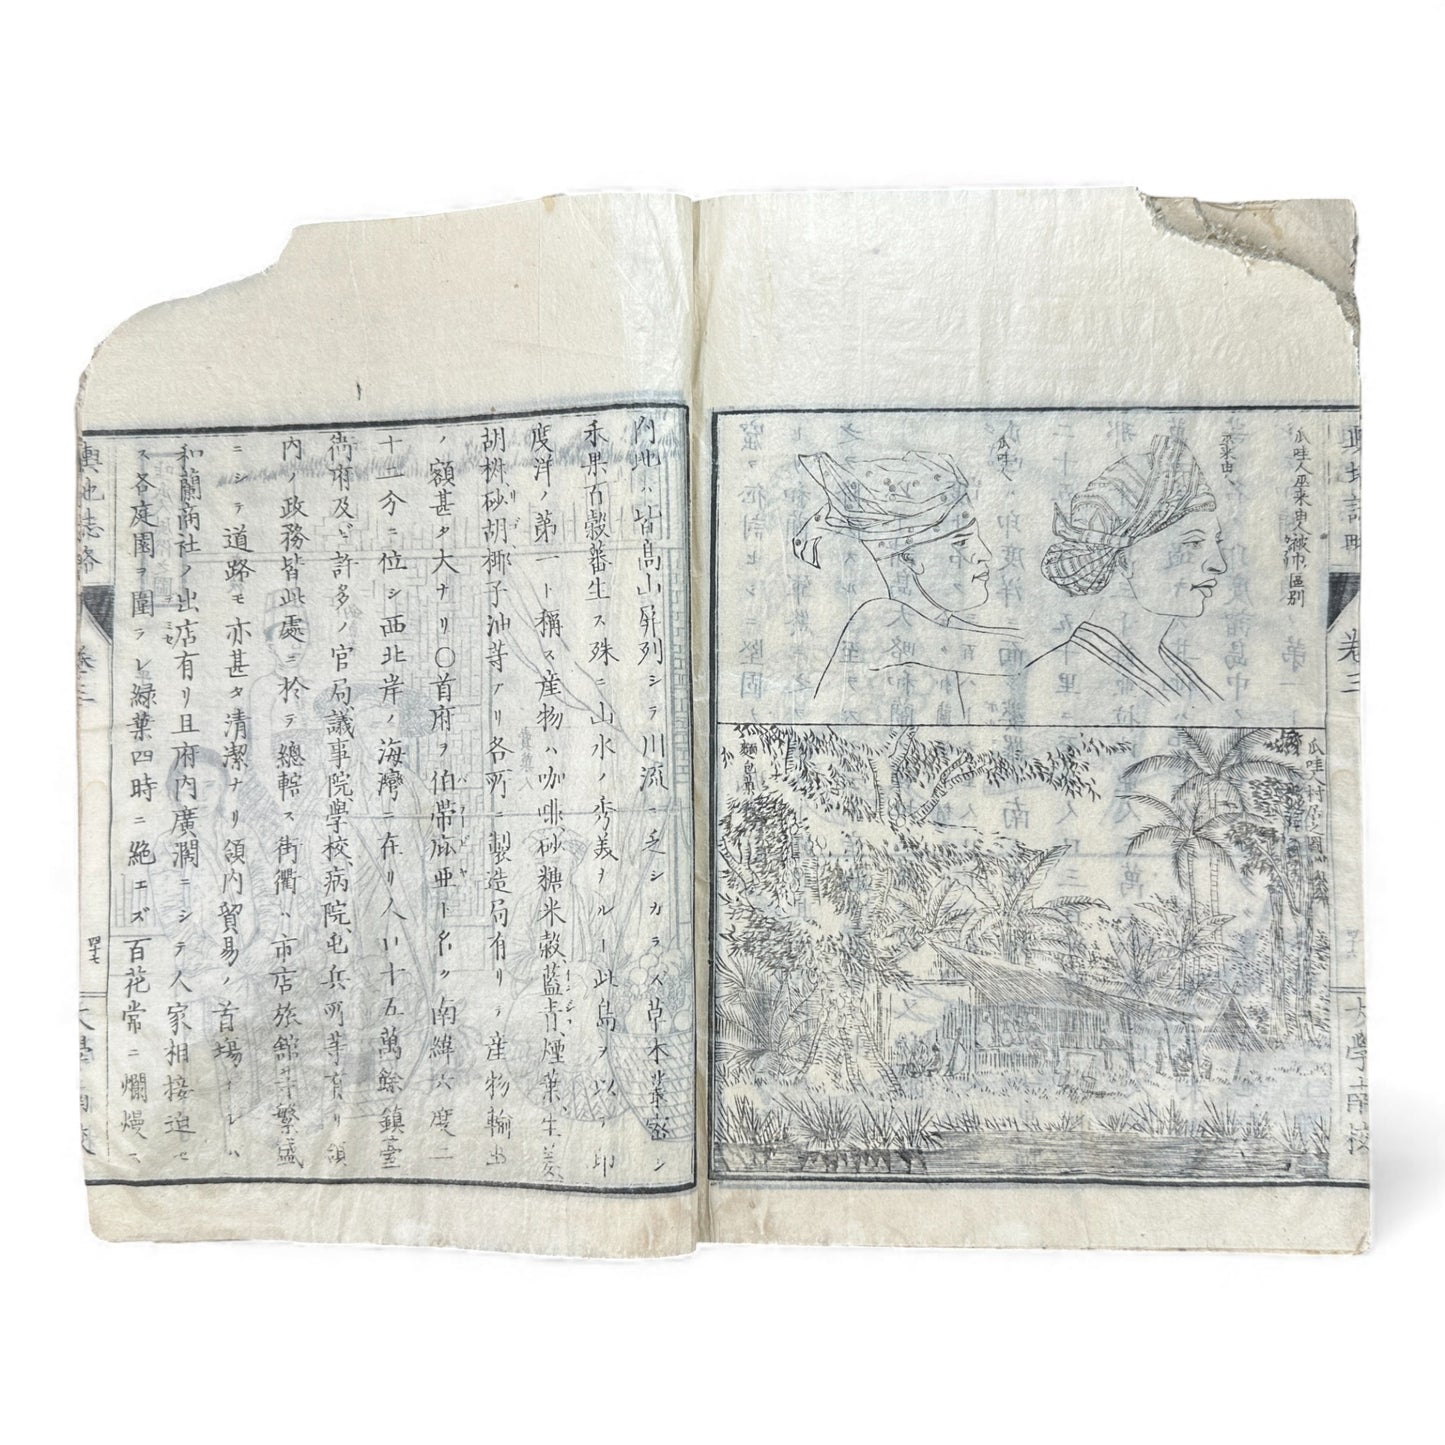 輿地誌略
卷三
大學南校
瓜哇人巫來由人被巾區別
巫來由人
瓜哇人
瓜哇人村落之圖
麵包菓
內地ハ皆高山屏列シテ川流ニ乏シカラズ草木叢密シ
禾果百穀蕃生ス殊ニ山水ノ秀美ナル一此島ヲ以テ印
度洋ノ第一ト稱ス産物ハ咖啡、砂糖、米穀、藍青、煙葉、生姜、
胡椒、砂胡椰子油等アリ各所ニ製造局有リテ産物輸出
ノ額甚タ大ナリ〇首府ヲ伯帶庇亞ト名ク南緯六度二
十一分ニ位シ西北岸ノ海灣ニ在リ人口十五萬餘鎮臺
衙府及ビ許多ノ官局、議事院、學校、病院、屯兵所等有リ領
內ノ政務皆此處ニ於テ總轄ス街衢ハ市店旅館
繁盛
ニシテ道路モ亦甚タ清潔ナリ領內貿易ノ首場ナレハ
和蘭商社ノ出店有リ且府內廣濶ニシテ人家相接迫セ
ス各庭園ヲ圍ラシ綠葉四時ニ絶エズ百花常ニ爛熳ス
輿地誌略
卷三
大學南校